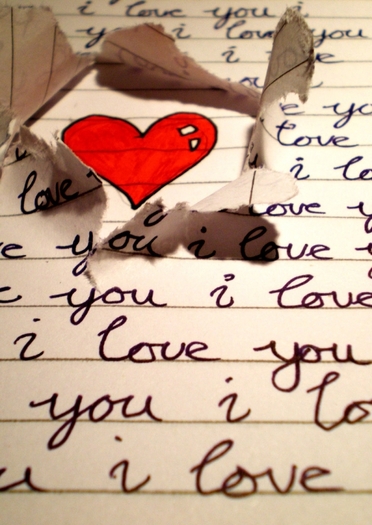 i love you i
y i love you
i
you
e yo
love
i lo
love
love y
e you i love y
you i love
i love you
you i lo
u i love